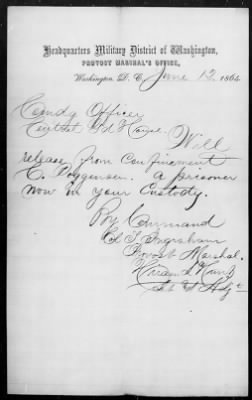 Headquarters Military District of Washington,
PROVOST MARSHAL'S OFFICE,
Washington, D. C. June 12, 1864
Comdg Officer
Central Gd House
Will
release from confinement
C. a prisoner
now in your custody.
By Command
Col T. Ingraham
Provost Marshal.